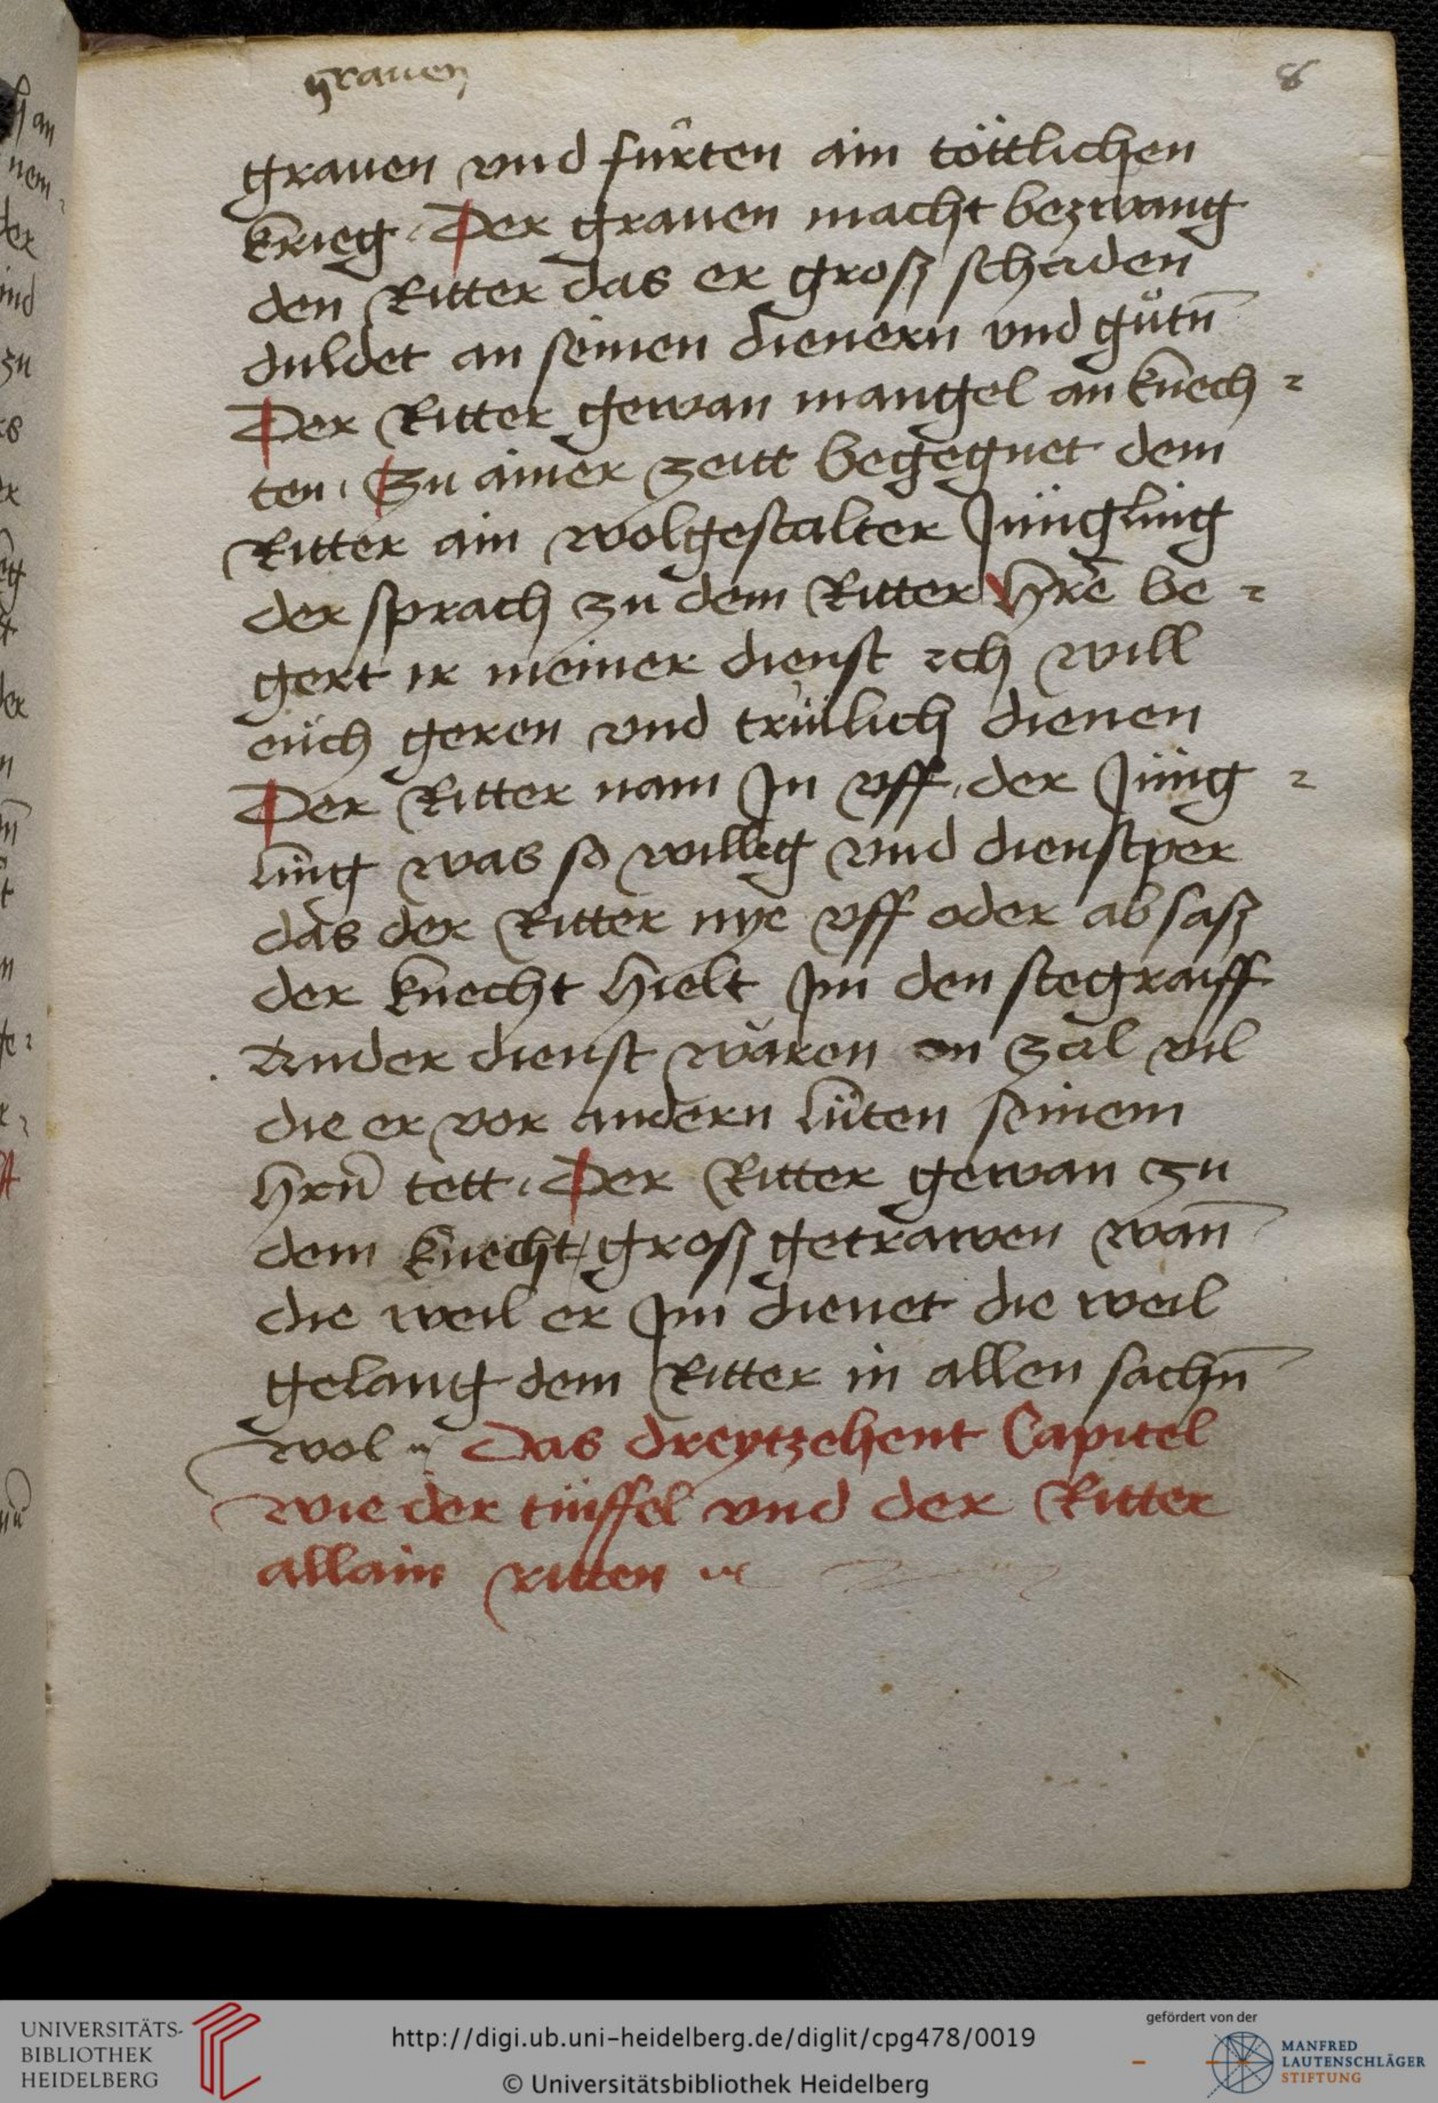 grauen
8
grauen vnd fürten ain töttlichen
krieg · Der grauen macht bezwang
den Ritter das er grosz schaden
duldet an seinen dienern vnd gütn̄
Der Ritter gewan mangel an knech=
ten · Zu ainer zeitt begegnet dem
Ritter ain wolgestalter Jüngling
der sprach zu dem Ritter Hrē be=
gert ir meiner dienst ich will
eüch geren vnd trülich dienen
Der Ritter nam Jn vff · der Jüng=
ling was so willeg vnd dienstper
das der Ritter nye vff oder ab sasz
der knecht hielt Jm den stegraiff
Ander dienst wǎren on zal vil
die er vor andern lüten seinem
Hrn̄ tett · Der Ritter gewan zu
dem knecht grosz getrawen wan̄
die weil er Jm dienet die weil
gelang dem Ritter in allen sachn̄
wol Das dreytzehent Capitel
wie der tüffel vnd der Ritter
allain ritten
UNIVERSITÄTS-
BIBLIOTHEK
HEIDELBERG
http://digi.ub.uni-heidelberg.de/diglit/cpg478/0019
© Universitätsbibliothek Heidelberg
gefördert von der
MANFRED
LAUTENSCHLÄGER
STIFTUNG